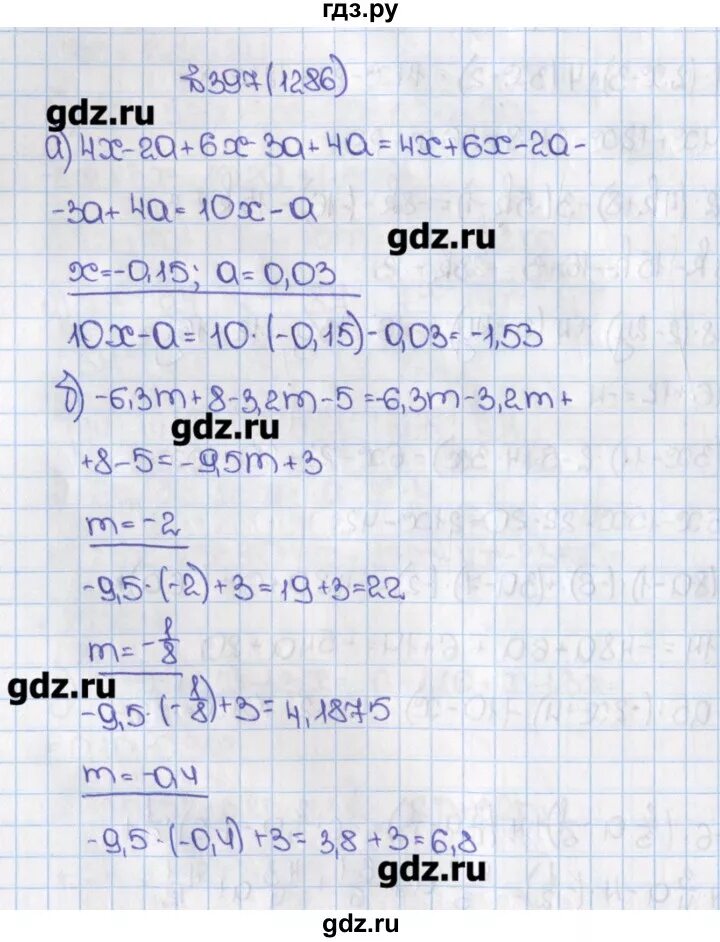 гдз.ру
№397(1286)
gdz.ru
а) 4x-2a+6x-3a+4a=4x+6x-2a-
-3a+4a=10x-a
gdz.ru
x=-0,15; a=0,03
10x-a=10·(-0,15)-0,03=-1,53
б) -6,3m+8-3,2m-5=-6,3m-3,2m+
gdz.ru
+8-5=-9,5m+3
m=-2
-9,5·(-2)+3=19+3=22
m=-1/8
gdz.ru
-9,5·(-1/8)+3=4,1875
m=-0,4
-9,5·(-0,4)+3=3,8+3=6,8
gdz.ru
gdz.ru